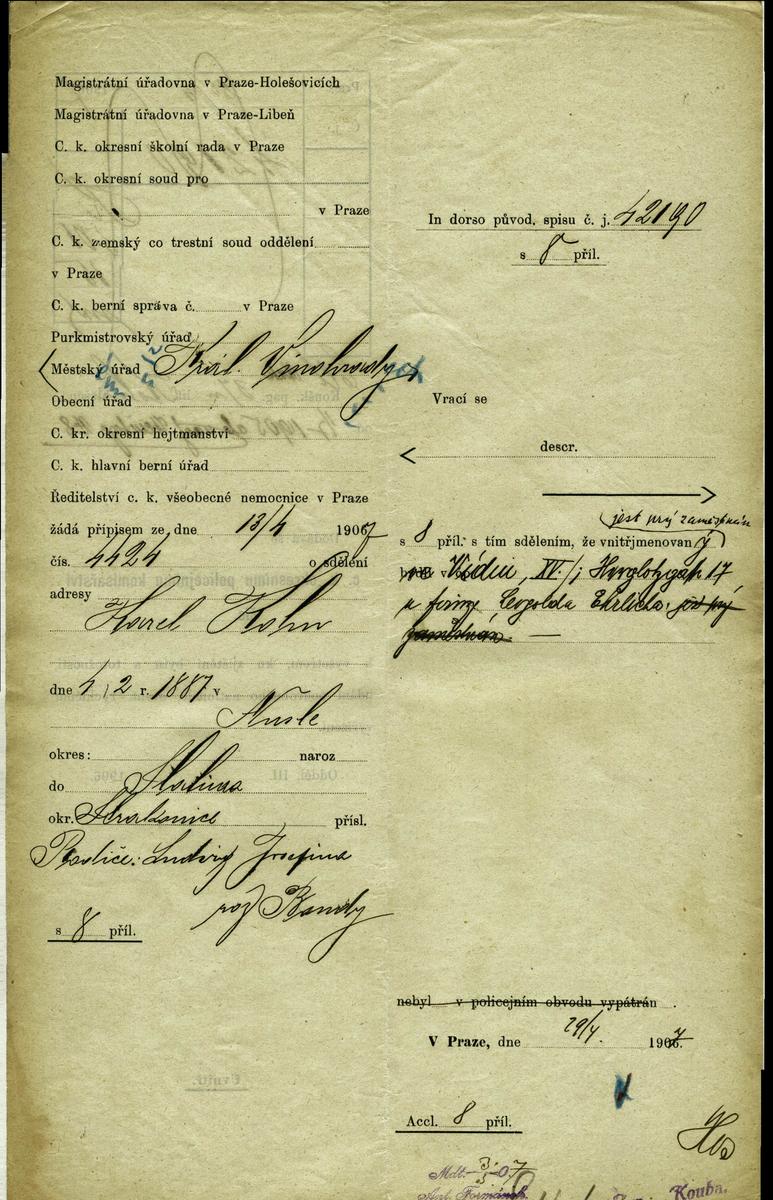 Magistrátní úřadovna v Praze-Holešovicích
Magistrátní úřadovna v Praze-Libeň
C. k. okresní školní rada v Praze
C. k. okresní soud pro
v Praze
C. k. zemský co trestní soud oddělení
v Praze
C. k. berní správa č. v Praze
Purkmistrovský úřad
Městský úřad Král. Vinohrady
Obecní úřad
C. kr. okresní hejtmanství
C. k. hlavní berní úřad
Ředitelství c. k. všeobecné nemocnice v Praze
žádá přípisem ze dne 13/4 1907
čís. 4424 o sdělení
adresy
Karel Kohn
dne 4/2 r. 1887 v
Nusle
okres: naroz
do
okr. Strakonice přísl.
Rodiče: Ludvig Josefina
roz Bandy
s 8 příl.
In dorso původ. spisu č. j. 42190
s 8 příl.
Vrací se
descr.
jest prý zaměstnán
s 8 příl. s tím sdělením, že vnitřjmenovaný
v Vídni, XV./1 17
u firmy Leopolda Ehrlicha. již prý
zaměstnán. —
nebyl v policejním obvodu vypátrán.
V Praze, dne 29/4. 1907.
Accl. 8 příl.
Mdt. 3/5 07
Kouba.